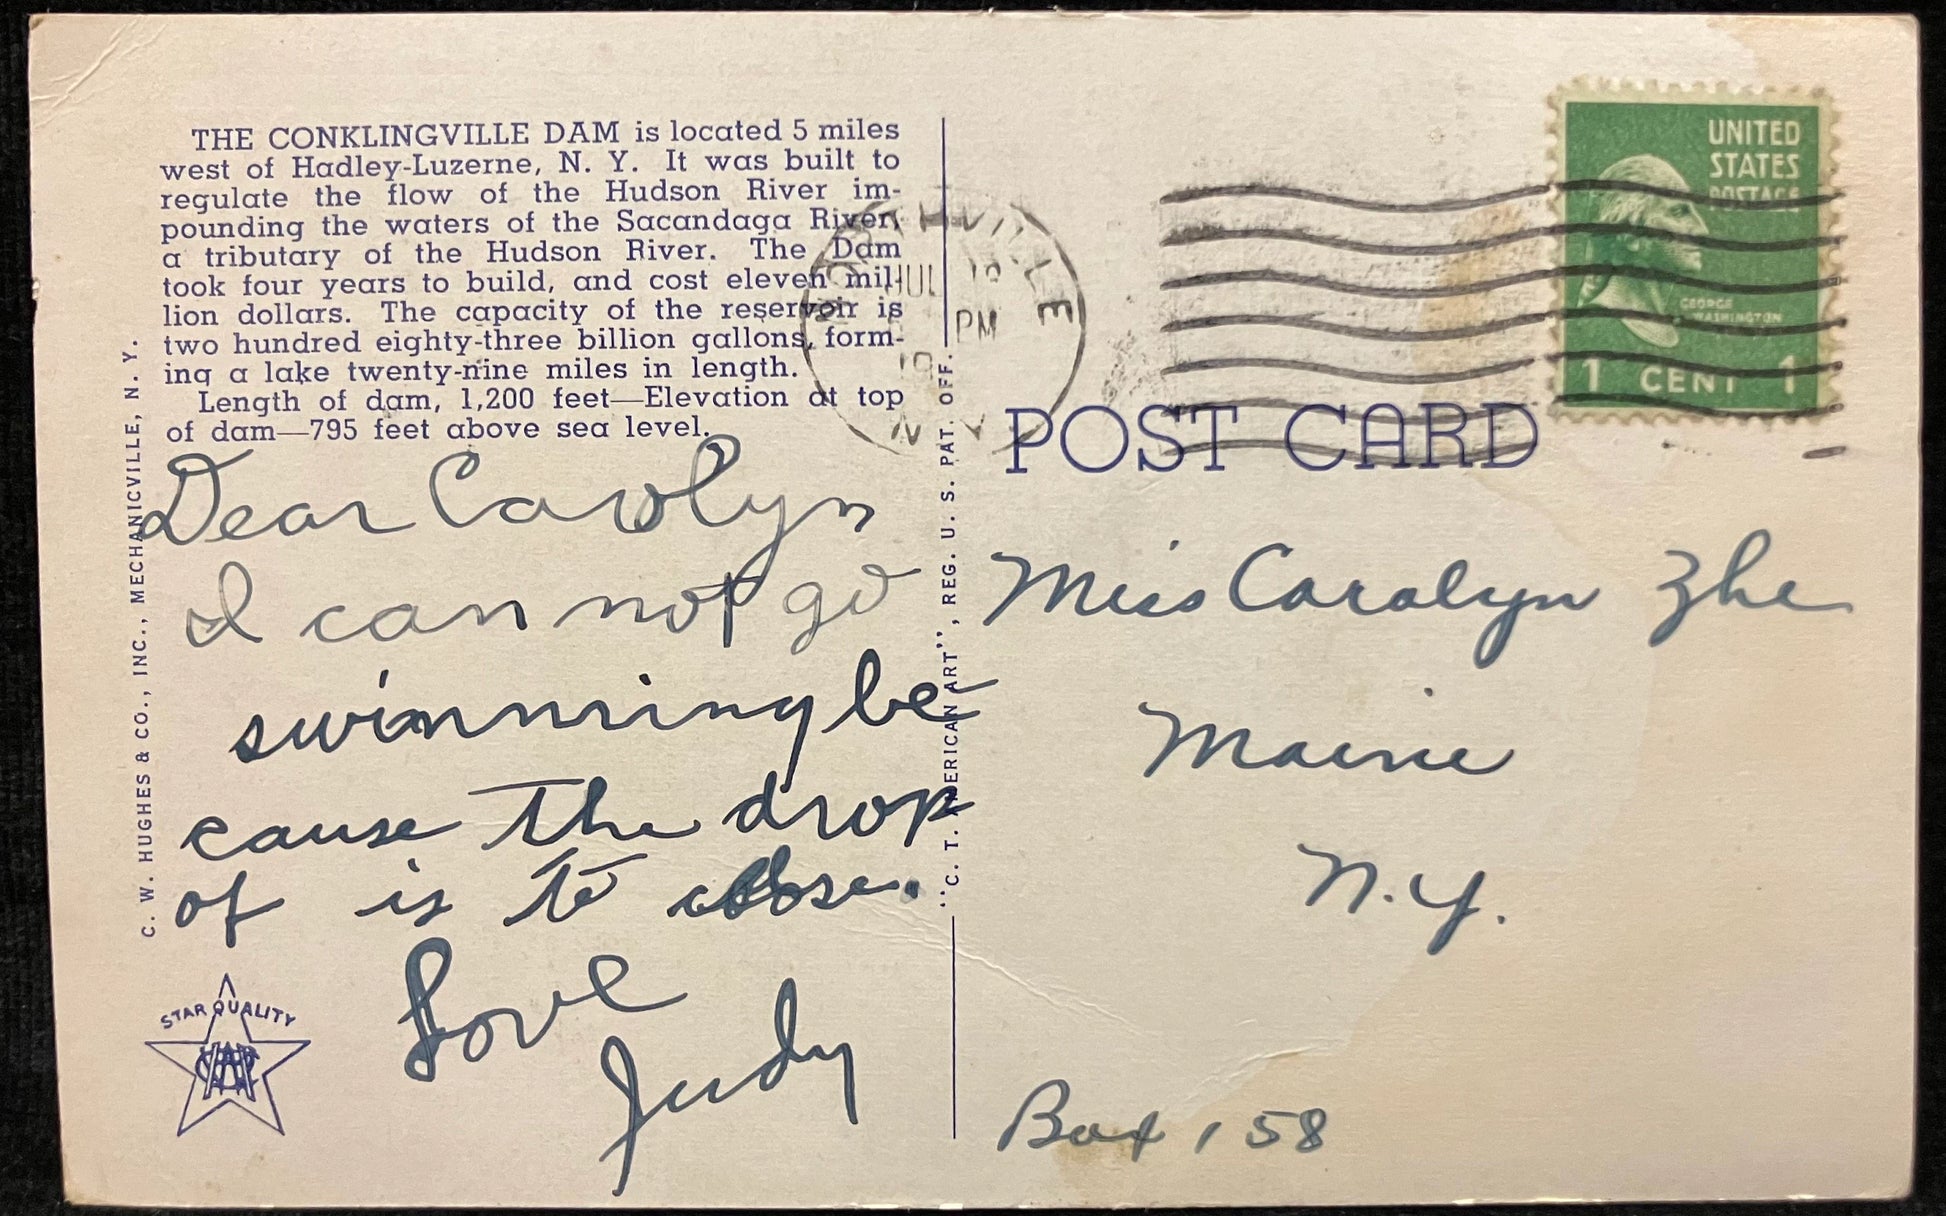 THE CONKLINGVILLE DAM is located 5 miles
west of Hadley-Luzerne, N. Y. It was built to
regulate the flow of the Hudson River im-
pounding the waters of the Sacandaga River,
a tributary of the Hudson River. The Dam
took four years to build, and cost eleven mil-
lion dollars. The capacity of the reservoir is
two hundred eighty-three billion gallons, form-
ing a lake twenty-nine miles in length.
Length of dam, 1,200 feet—Elevation at top
of dam—795 feet above sea level.
Dear Carolyn
I can not go
swimming be
cause the drop
of is to close.
Love
Judy
C. W. HUGHES & CO., INC., MECHANICVILLE, N. Y.
STAR QUALITY
"C. T. AMERICAN ART", REG. U. S. PAT. OFF.
NORTHVILLE
JUL
PM
N Y
UNITED
STATES
POSTAGE
GEORGE
WASHINGTON
1 CENT 1
POST CARD
Miss Carolyn Zhe
Maine
N.Y.
Box 158